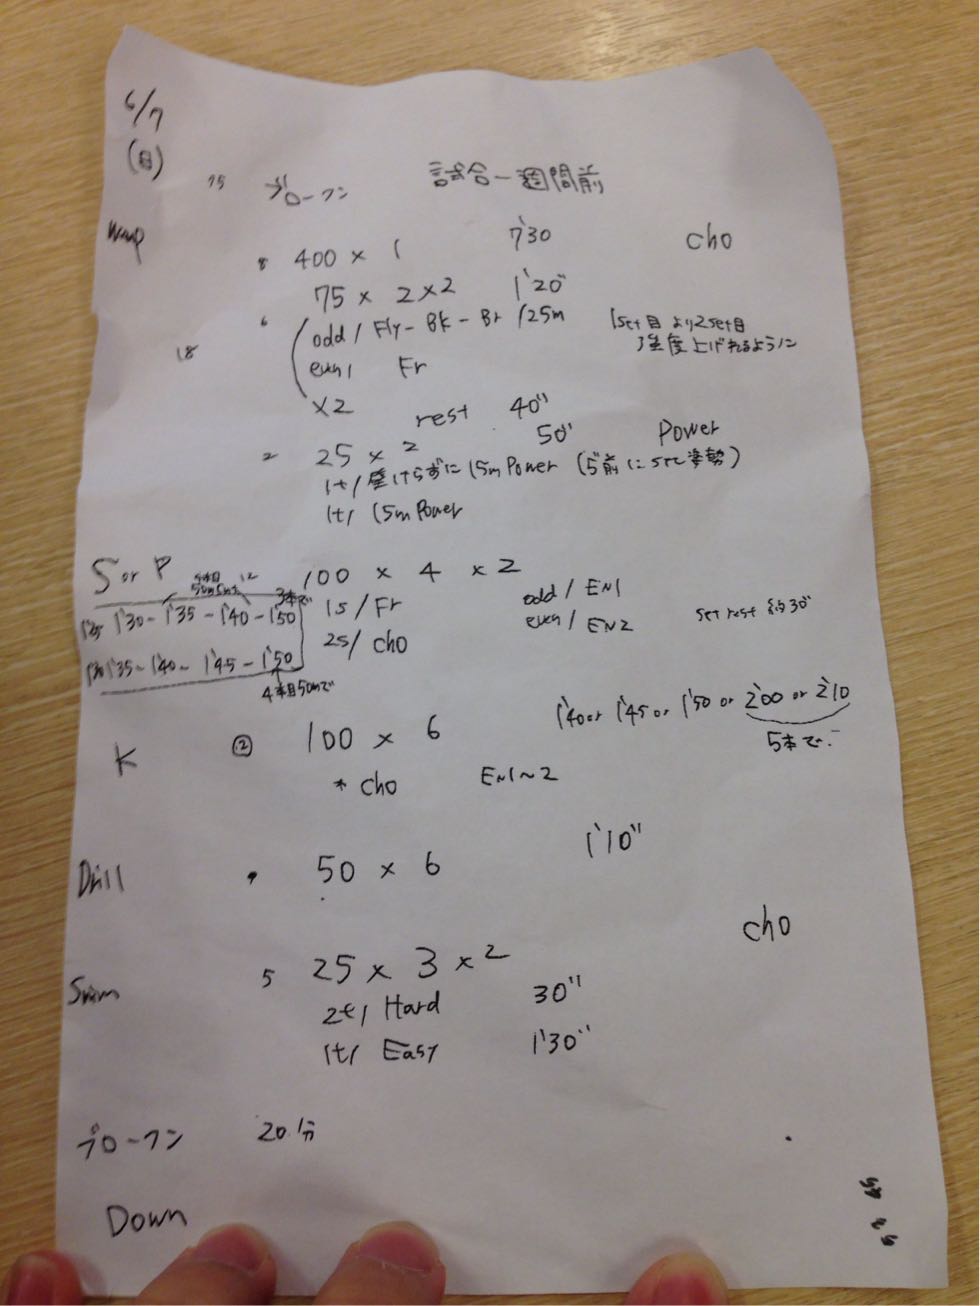 6/7
(日)
15 ブローフン 試合一週間前
Wup
8 400 × 1 7'30 cho
75 × 2 × 2 1'20"
6 odd / Fly - Bk - Br /25m 1set目より2set目
18 強度上げれるように
even / Fr
×2 rest 40"
2 25 × 2 50" Power
1t/ 壁けらずに15m Power (5"前にset姿勢)
1t/ 15m Power
S or P 4本目 50m 12 100 × 4 × 2
3本で
1'25 1'30 - 1'35 - 1'40 - 1'50 1s/ Fr odd / EN1
2s/ cho even / EN2 set rest 約30"
1'30 1'35 - 1'40 - 1'45 - 1'50
4本目50mで
K ② 100 × 6 1'40 or 1'45 or 1'50 or 2'00 or 2'10
5本で
* cho EN1~2
Drill 50 × 6 1'10"
cho
Swim 5 25 × 3 × 2
2t/ Hard 30"
1t/ Easy 1'30"
ブローフン 20分
Down